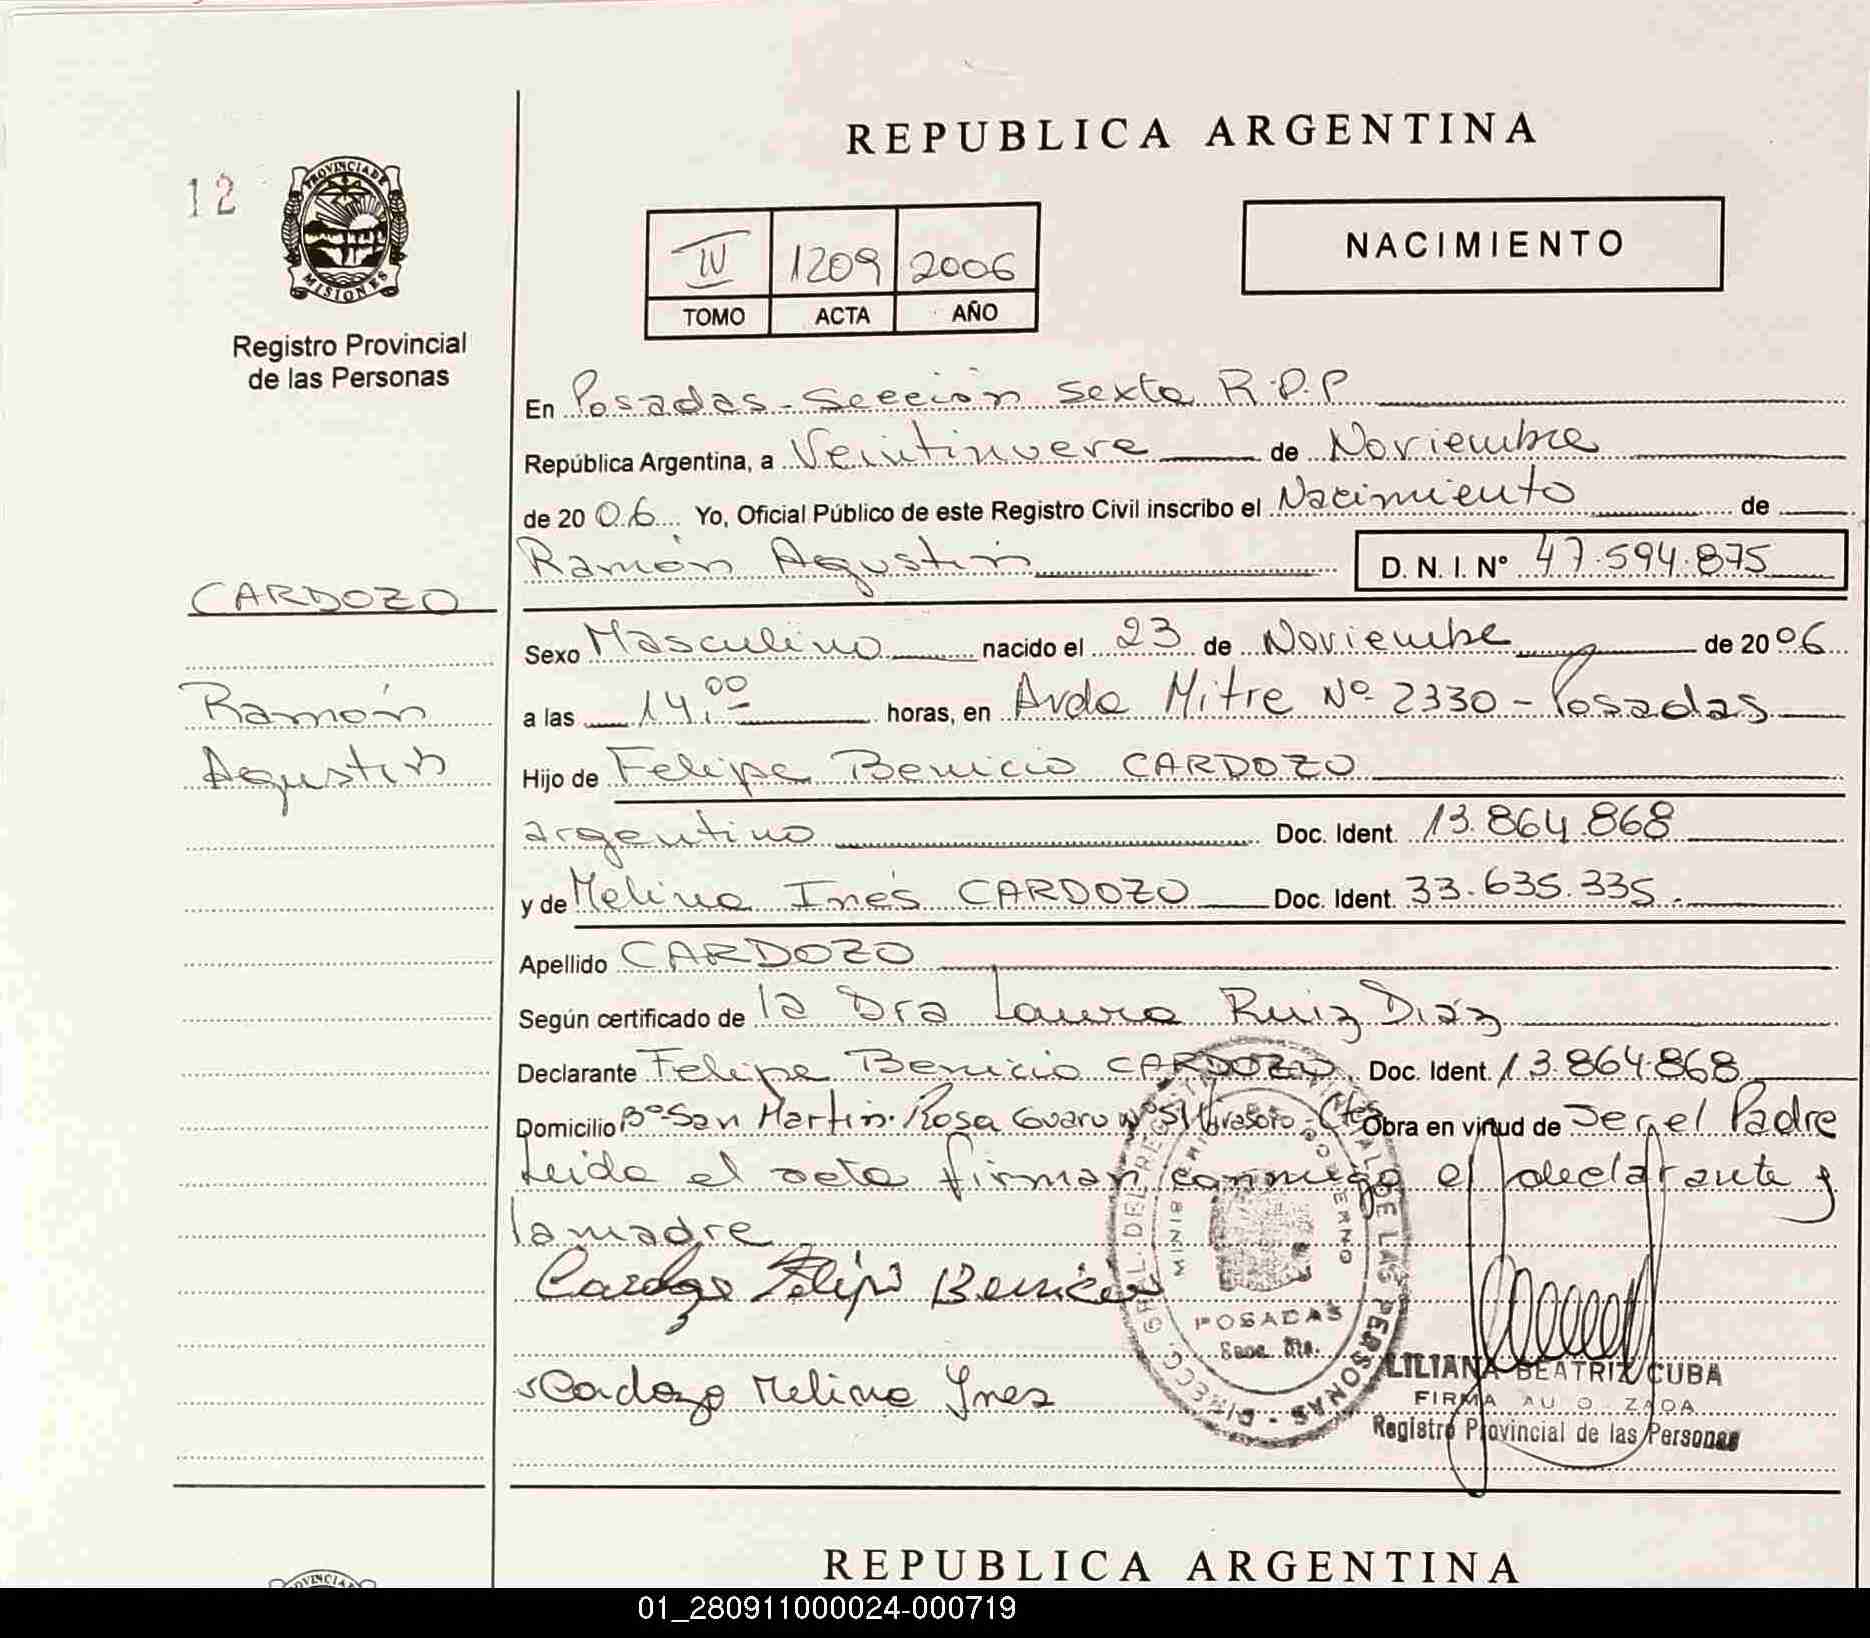 REPUBLICA ARGENTINA
12
PROVINCIA DE
MISIONES
Registro Provincial
de las Personas
IV 1209 2006
TOMO ACTA AÑO
NACIMIENTO
En Posadas - Sección Sexta R.P.P
República Argentina, a Veintinueve de Noviembre
de 2006 Yo, Oficial Público de este Registro Civil inscribo el Nacimiento de
Ramón Agustin D. N. I. Nº 47.594.875
CARDOZO
Ramón
Agustin
Sexo Masculino nacido el 23 de Noviembre de 2006
a las 14,00 horas, en Avda Mitre Nº 2330 - Posadas
Hijo de Felipe Benicio CARDOZO
argentino Doc. Ident. 13.864.868
y de Melina Inés CARDOZO Doc. Ident. 33.635.335.
Apellido CARDOZO
Según certificado de la Dra Laura Ruiz Diáz
Declarante Felipe Benicio CARDOZO Doc. Ident. 13.864.868
Domicilio Bº San Martin. Rosa Guaru Nº Obra en virtud de Ser el Padre
Leida el acta firman conmigo el declarante y
la madre
Cardozo Felipe Benicio
Cardozo Melina Ines
POSADAS
Secc. 6ta.
LILIANA BEATRIZ CUBA
FIRMA AU O ZADA
Registro Provincial de las Personas
REPUBLICA ARGENTINA
01_280911000024-000719